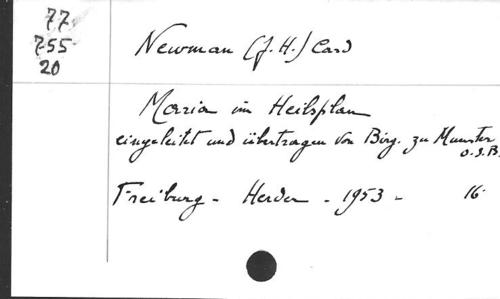 77
755
20
Newman (J. H.) Card
Maria im Heilsplan
eingeleitet und übertragen von Birg. zu Münster
O.S.B.
Freiburg - Herder - 1953 - 16